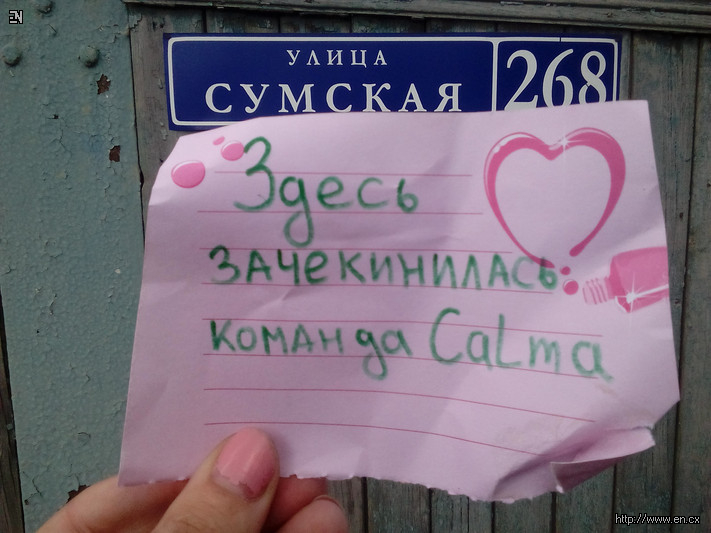 EN
УЛИЦА
СУМСКАЯ 268
Здесь
зачекинилась
команда Calma
http://www.en.cx